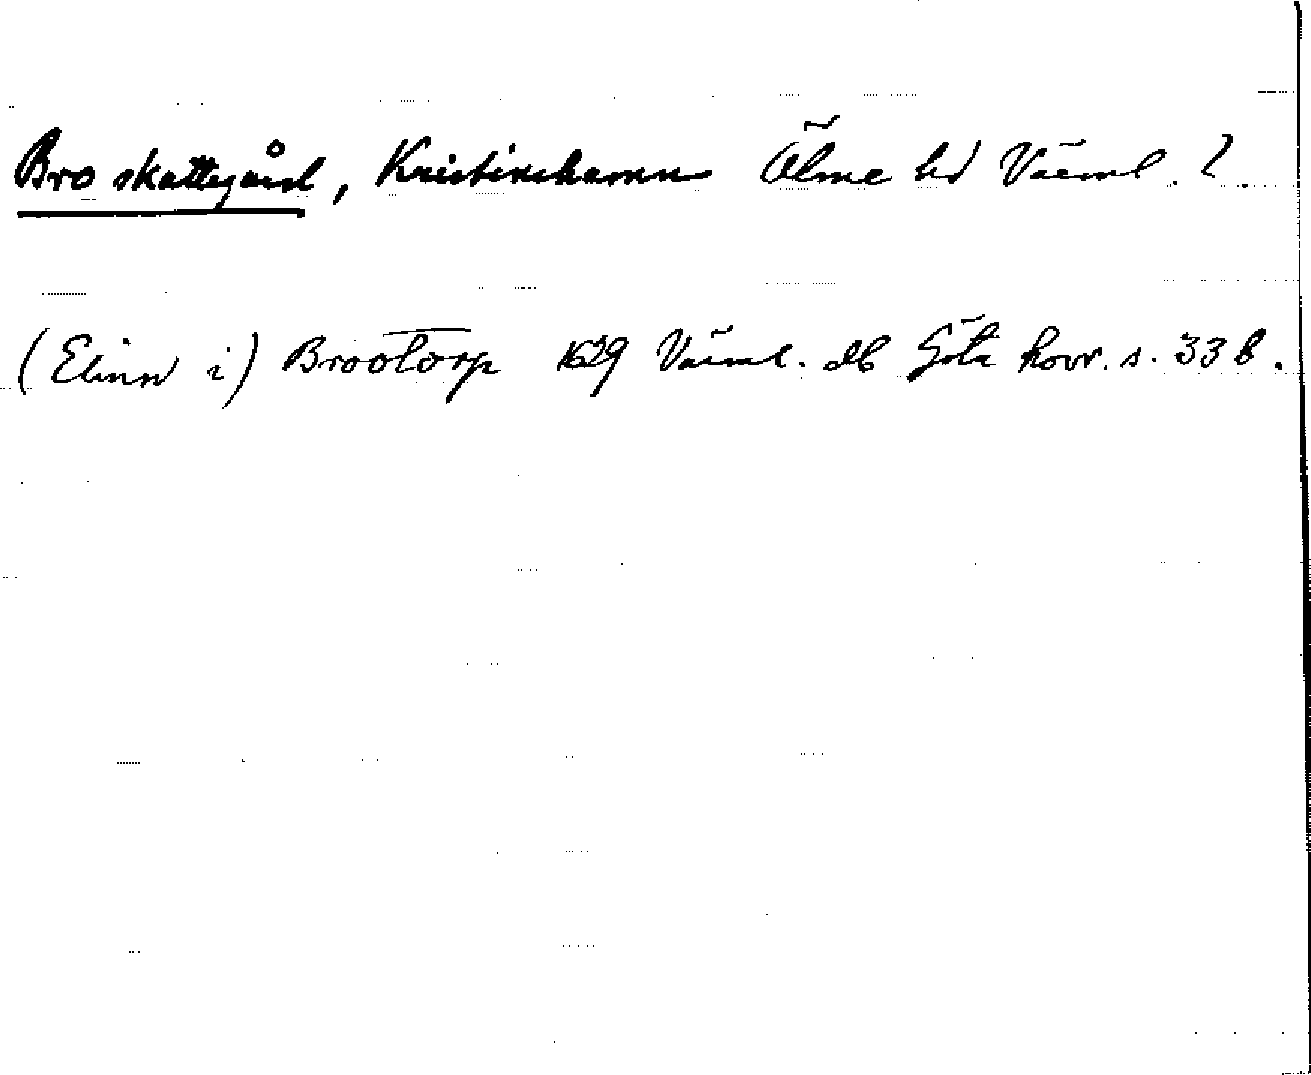 Bro skattegård, Kristinehamn Ölme hd Värml. ?
(Elinn i) Brootorp 1629 Värml. db Göta hovr. s. 33 b.